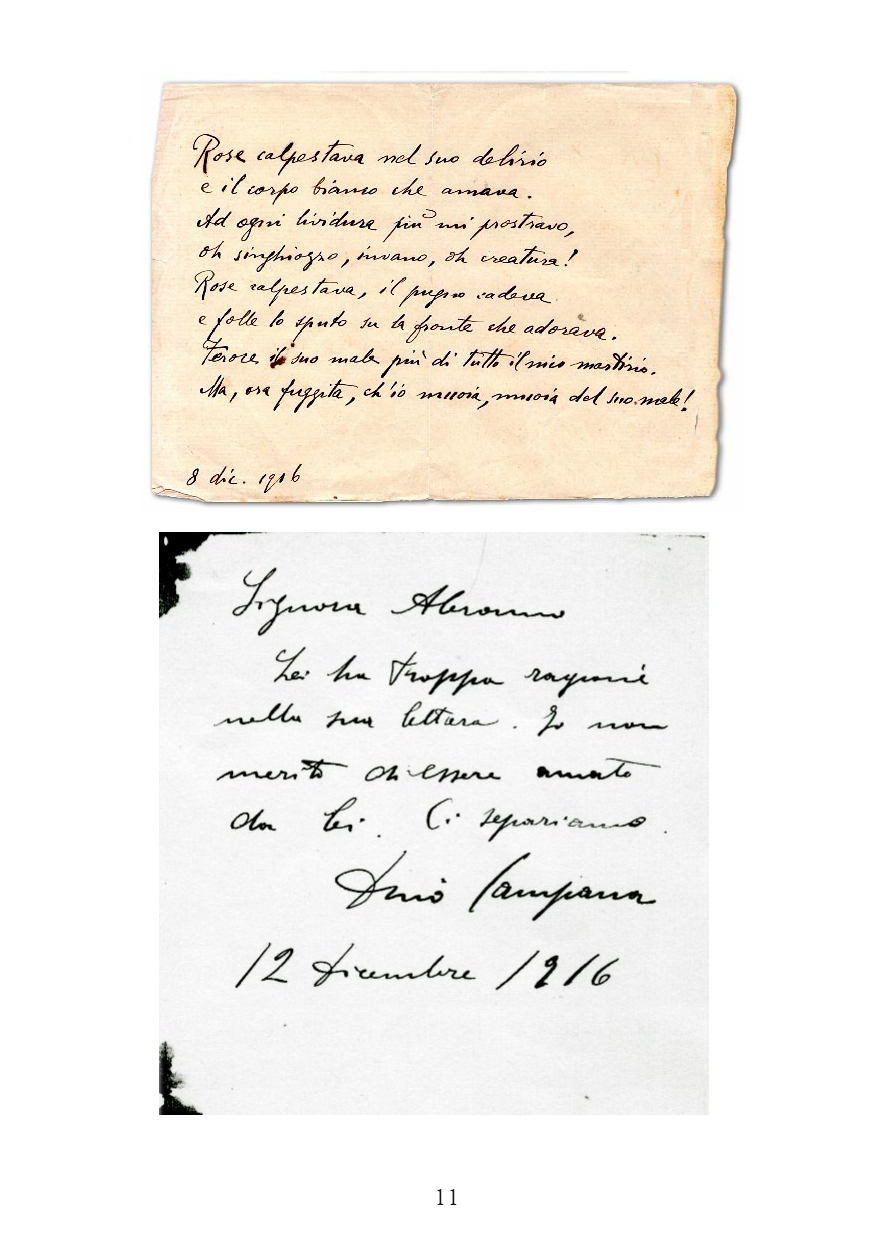 Rose calpestava nel suo delirio
e il corpo bianco che amava.
Ad ogni lividura più mi prostravo,
oh singhiozzo, invano, oh creatura!
Rose calpestava, il pugno cadeva
e folle lo sputo su la fronte che adorava.
Feroce il suo male più di tutto il mio martirio.
Ma, ora fuggita, ch'io muoia, muoia del suo male!
8 dic. 1916
Signora
Lei ha troppa ragione
nella sua lettera. Io non
merito di essere amato
da lei. Ci separiamo.
Dino Campana
12 Dicembre 1916
11